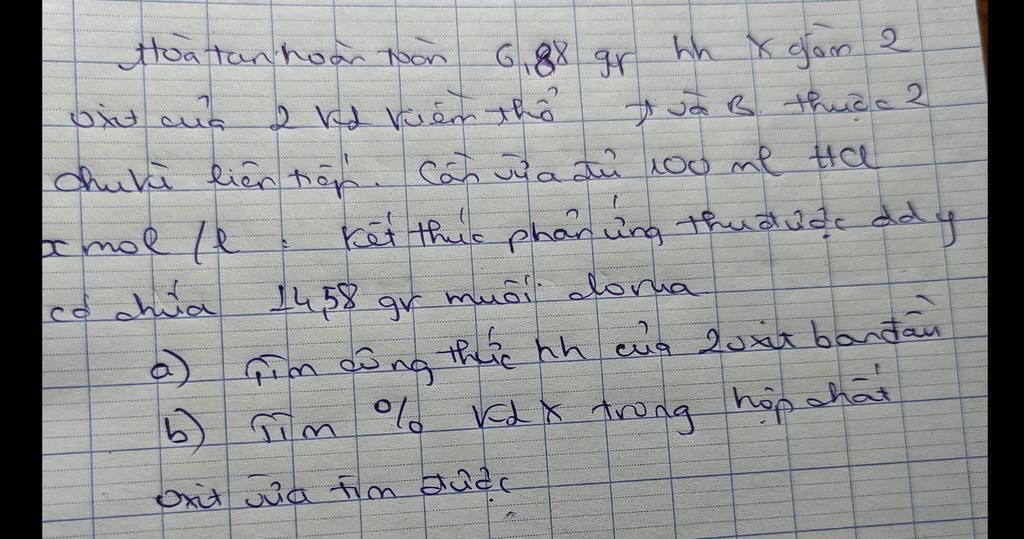 Hòa tan hoàn toàn 6,88 gr hh X gồm 2
oxit của 2 kl kiềm thổ A và B thuộc 2
chu kì liên tiếp. Cần vừa đủ 100 ml HCl
x mol /l. Kết thúc phản ứng thu được dd y
có chứa 14,58 gr muối clorua
a) Tìm công thức hh của 2 oxit ban đầu
b) Tìm % kl X trong hợp chất
oxit vừa tìm được